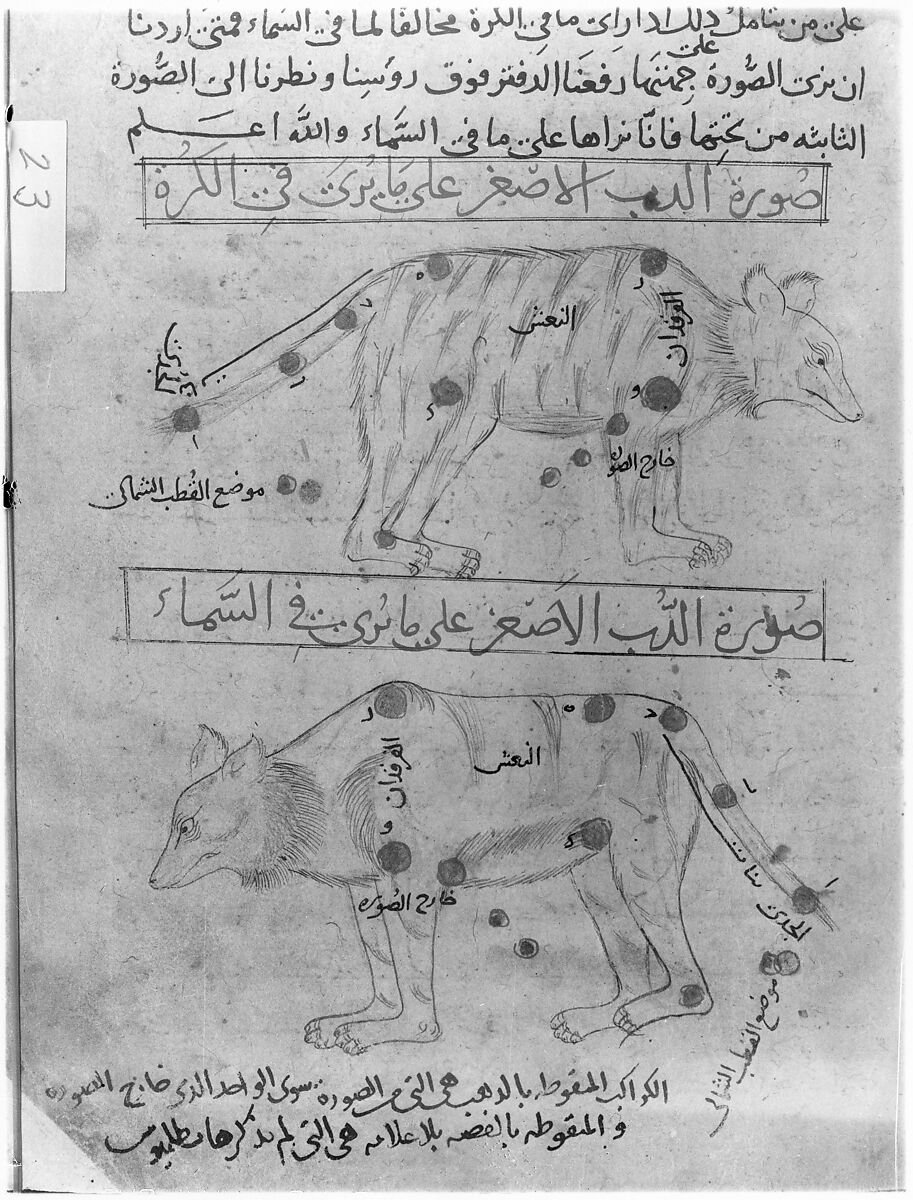 على من يتامل ذلك اذا راى ما فى الكرة مخالفا لما فى السماء فمتى اردنا
ان نرى الصورة على جهتها رفعنا الدفتر فوق رؤسنا ونظرنا الى الصورة
الثانية من تحتها فانا نراها على ما فى السماء والله اعلم
23
صورة الدب الاصغر على ما يرى فى الكرة
النعش
الفرقدان
الجدى
خارج الصورة
موضع القطب الشمالى
صورة الدب الاصغر على ما يرى فى السماء
النعش
الفرقدان
خارج الصورة
الجدى
موضع القطب الشمالى
الكواكب المنقوطه بالذهب هى التى من الصورة سوى الواحد الذى خارج الصوره
و المنقوطه بالفضه بلا علامه هى التى لم يذكرها بطلميوس